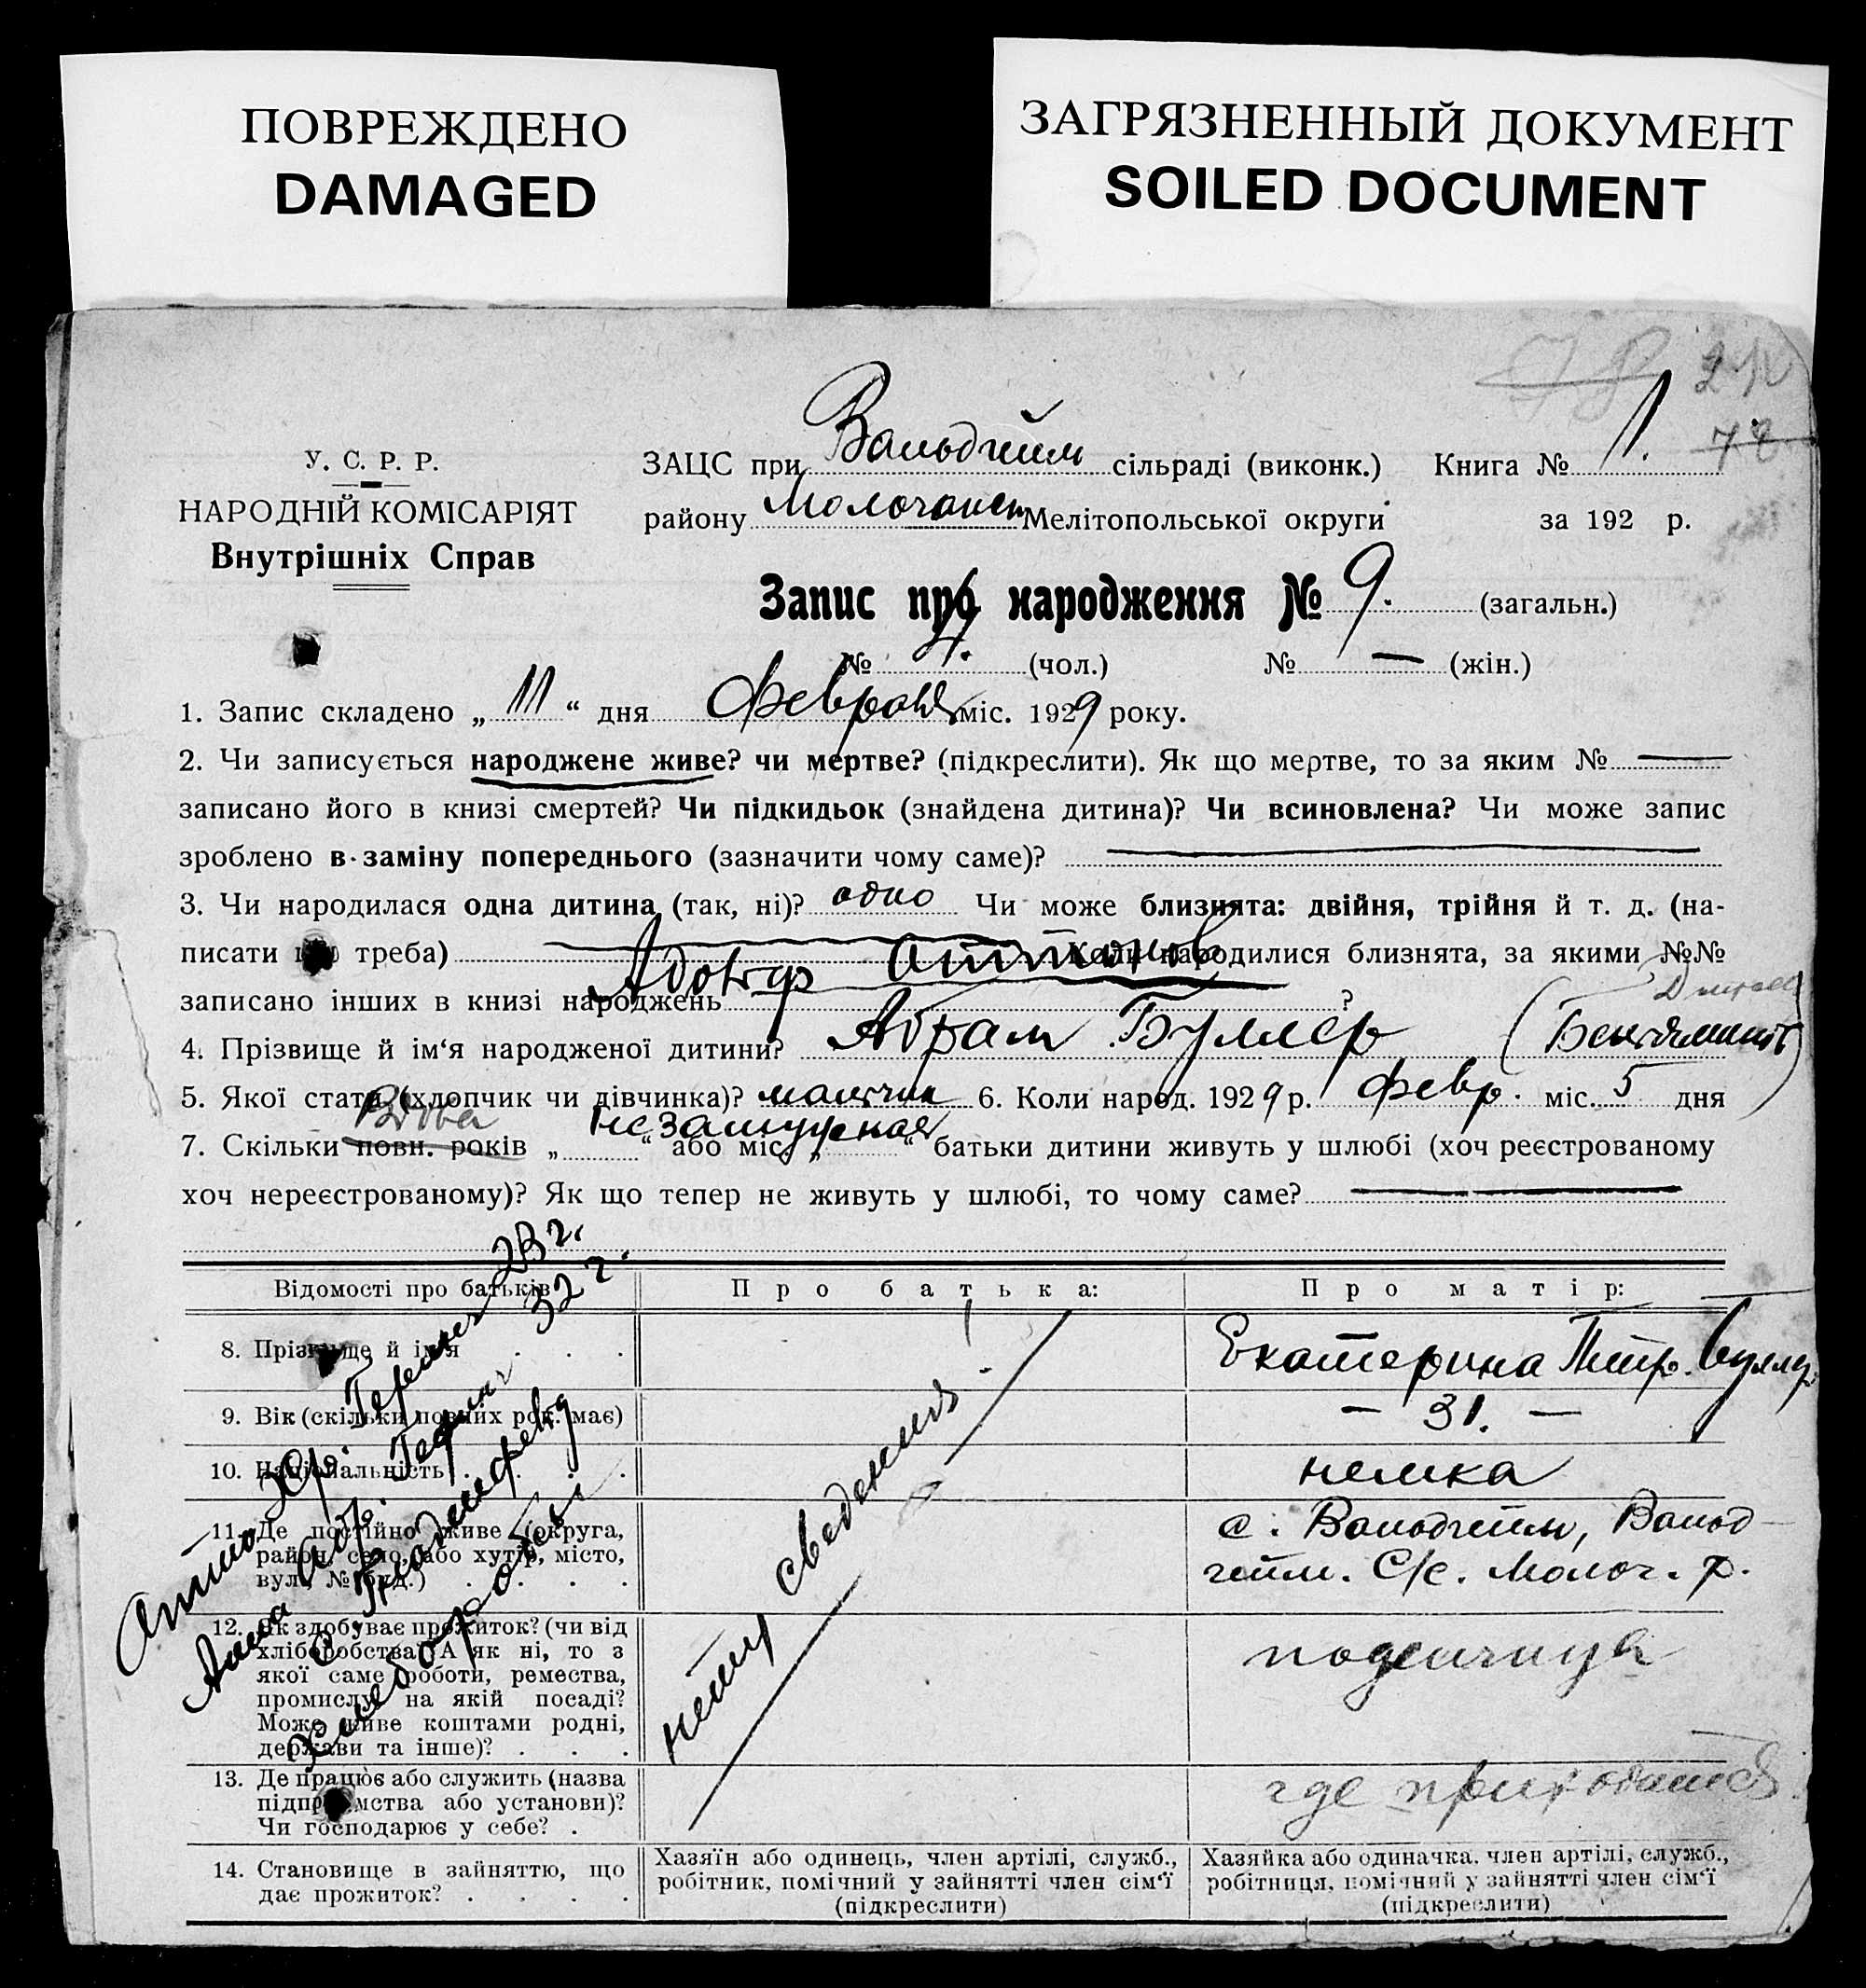 ПОВРЕЖДЕНО
DAMAGED
ЗАГРЯЗНЕННЫЙ ДОКУМЕНТ
SOILED DOCUMENT
78
У. С. Р. Р.
НАРОДНІЙ КОМІСАРІЯТ
Внутрішніх Справ
ЗАЦС при Вальдгейм сільраді (виконк.) Книга № 1.
району Молочанск Мелітопольської округи за 192 р.
Запис про народження № 9. (загальн.)
№ 4. (чол.) № — (жін.)
1. Запис складено „ 11 “ дня Февраля міс. 1929 року.
2. Чи записується народжене живе? чи мертве? (підкреслити). Як що мертве, то за яким № —
записано його в книзі смертей? Чи підкидьок (знайдена дитина)? Чи всиновлена? Чи може запис
зроблено в заміну попереднього (зазначити чому саме)? —
3. Чи народилася одна дитина (так, ні)? одно Чи може близнята: двійня, трійня й т. д. (на-
писати що треба) — Коли народилися близнята, за якими №№
Адольф
записано інших в книзі народжень ?
4. Прізвище й ім‘я народженої дитини? Абрам Буллер
5. Якої стати (хлопчик чи дівчинка)? мальчик 6. Коли народ. 1929 р. Февр. міс. 5 дня
Вдова незамужная
7. Скільки повн. років „ “ або міс. „ “ батьки дитини живуть у шлюбі (хоч реєстрованому
хоч нереєстрованому)? Як що тепер не живуть у шлюбі, то чому саме? —
Відомості про батьків
Про батька:
Про матір:
8. Прізвище й ім‘я . . .
Екатерина Петр. Буллер
9. Вік (скільки повних рок. має)
— 31. —
10. Національність . . . .
немка
11. Де постійно живе (округа,
район, село, або хутір, місто,
вул., № буд.) . . . .
с. Вальдгейм, Вальд-
гейм. С/с. Молоч. р.
12. Як здобуває прожиток? (чи від
хліборобства? А як ні, то з
якої саме роботи, ремества,
промислу, на якій посаді?
Може живе коштами родні,
держави та інше)? . . .
поденщица
13. Де працює або служить (назва
підприємства або установи)?
Чи господарює у себе? .
где приходится
нету сведения
28 г.
32 г.
Хлебороб
14. Становище в зайняттю, що
дає прожиток? . . . .
Хазяїн або одинець, член артілі, служб.,
робітник, помічний у зайнятті член сім‘ї
(підкреслити)
Хазяйка або одиначка, член артілі, служб.,
робітниця, помічний у зайнятті член сім‘ї
(підкреслити)